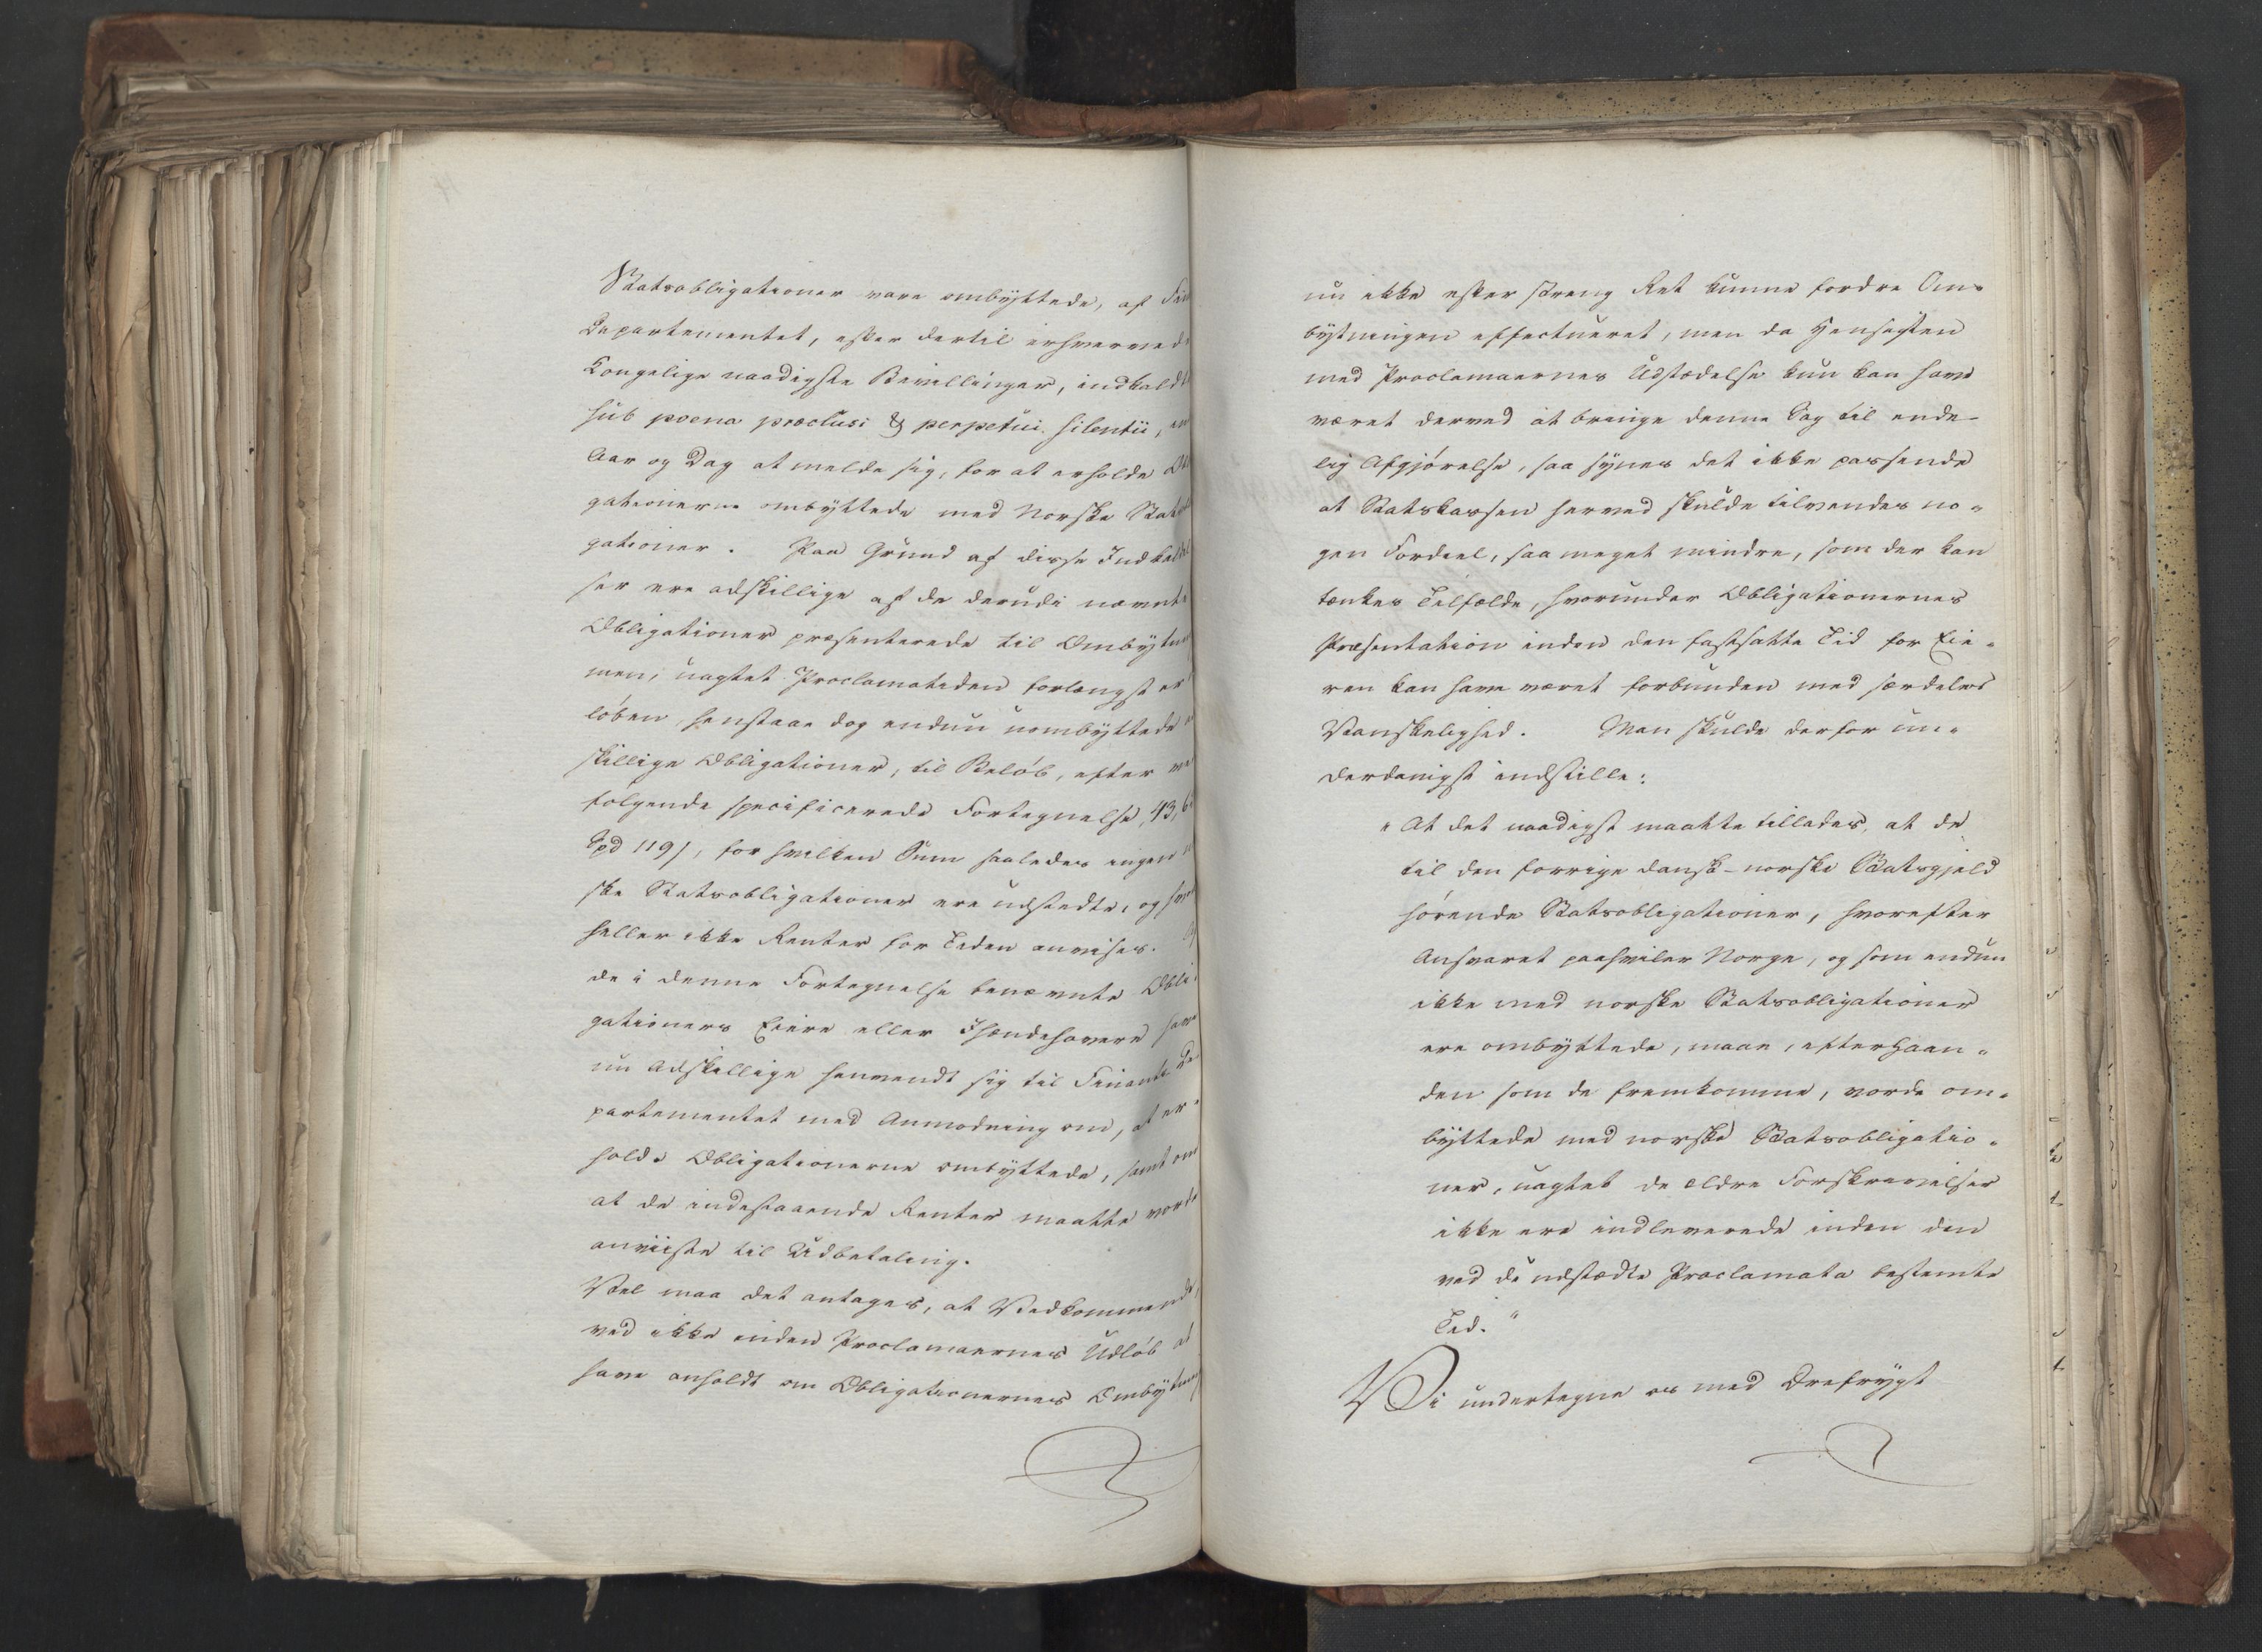 Statsobligationer vare ombyttede, af Fin
Departementet, efter dertil erhvervede
Kongelige naadigste Bevillinger, indkaldte
sub poena præclusi & perpetui silentii, in
Aar og Dag at melde sig, for at erholde Obli
gationerne ombyttede med Norske Stats
gationer. Paa Grund af disse Indkaldel
ser ere adskillige af de derudi nævnte
Obligationer præsenterede til Ombytn
men, uagtet Proclamatiden forlængst er
løben, henstaae dog endnu uombyttede
skillige Obligationer, til Beløb, efter ved
følgende specificerede Fortegnelse, 43,6
Spd 119/, for hvilken Sum saaledes ingen
ske Statsobligationer ere udstedte, og hvor
heller ikke Renter for Tiden anvises.
de i denne Fortegnelse benævnte Obli-
gationers Eiere eller Ihændehavere have
nu Adskillige henvendt sig til Finants De
partementet med Anmodning om, at er-
holde Obligationerne ombyttede, samt om
at de indestaaende Renter maatte vorde
anviiste til Udbetaling.
Vel maa det antages, at Vedkommende,
ved ikke inden Proclamaernes Udløb at
have anholdt om Obligationernes Ombytn
nu ikke efter streng Ret kunne fordre Om-
bytningen effectueret, men da Hensigten
med Proclamaernes Udstædelse kun kan have
været derved at bringe denne Sag til ende-
lig Afgjørelse, saa synes det ikke passende
at Statskassen herved skulde tilvendes no-
gen Fordeel, saa meget mindre, som der kan
tænkes Tilfælde, hvorunder Obligationernes
Præsentation inden den fastsatte Tid for Eie-
ren kan have været forbunden med særdeles
Vanskelighed. Man skulde derfor un-
derdanigst indstille:
"At det naadigst maatte tillades, at de
til den forrige dansk-norske Statsgjeld
hørende Statsobligationer, hvorefter
Ansvaret paahviler Norge, og som endnu
ikke med norske Statsobligationer
ere ombyttede, maae, efterhaan-
den som de fremkomme, vorde om-
byttede med norske Statsobligatio-
ner, uagtet de ældre Forskrivelser
ikke ere indleverede inden den
ved de udstædte Proclamata bestemte
Tid."
Vi undertegne os med Ærefrygt